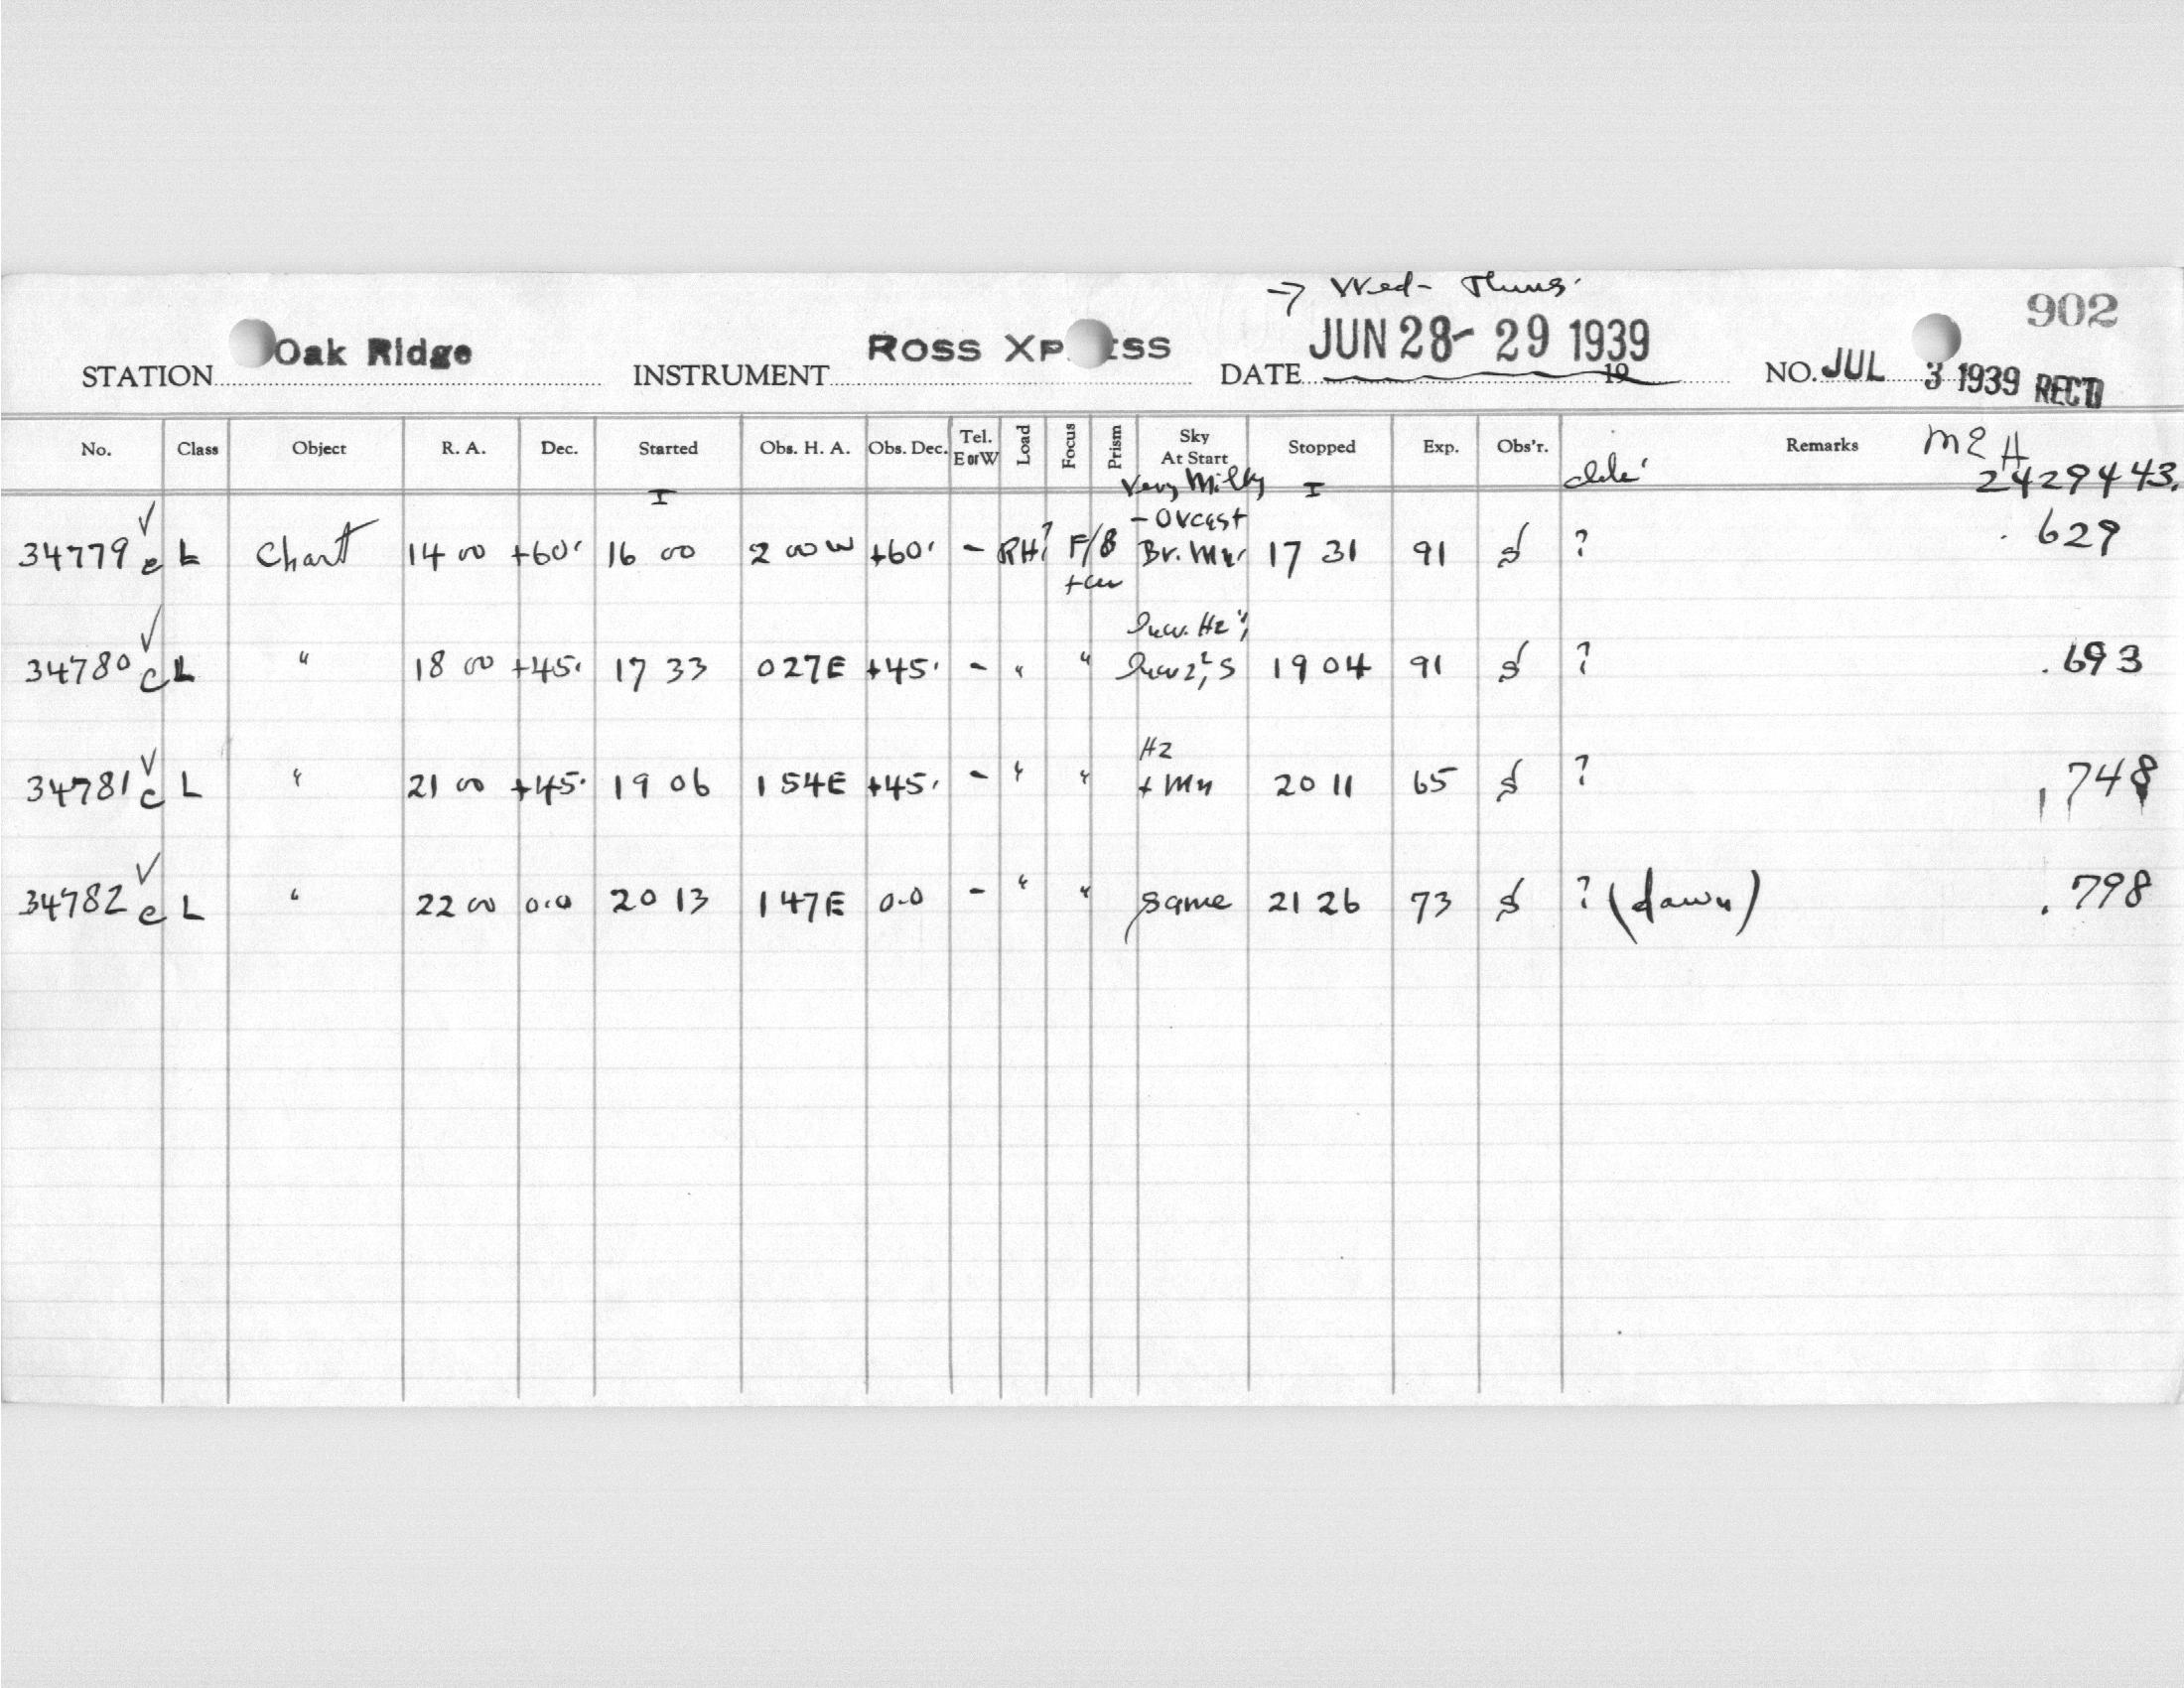 → Wed- Thurs.
902
STATION Oak Ridge INSTRUMENT ROSS XPRESS DATE JUN 28- 29 1939 19 NO. JUL 3 1939 REC'D
No. Class Object R. A. Dec. Started Obs. H. A. Obs. Dec. Tel. E or W Load Focus Prism Sky At Start Stopped Exp. Obs'r. Remarks M2H
I Very Milky I 2429443.
- Ovcast
34779 c L Chart 14 00 +60. 16 00 2 00 W +60. - RH? F/8 Br. Mn. 17 31 91 ? .629
34780 c L " 18 00 +45. 17 33 0 27E +45. - " " 19 04 91 ? .693
Hz
34781 c L " 21 00 +45. 19 06 1 54E +45. - " " + Mn 20 11 65 ? .748
34782 c L " 22 00 0.0 20 13 1 47E 0.0 - " " same 21 26 73 ? (dawn) .798